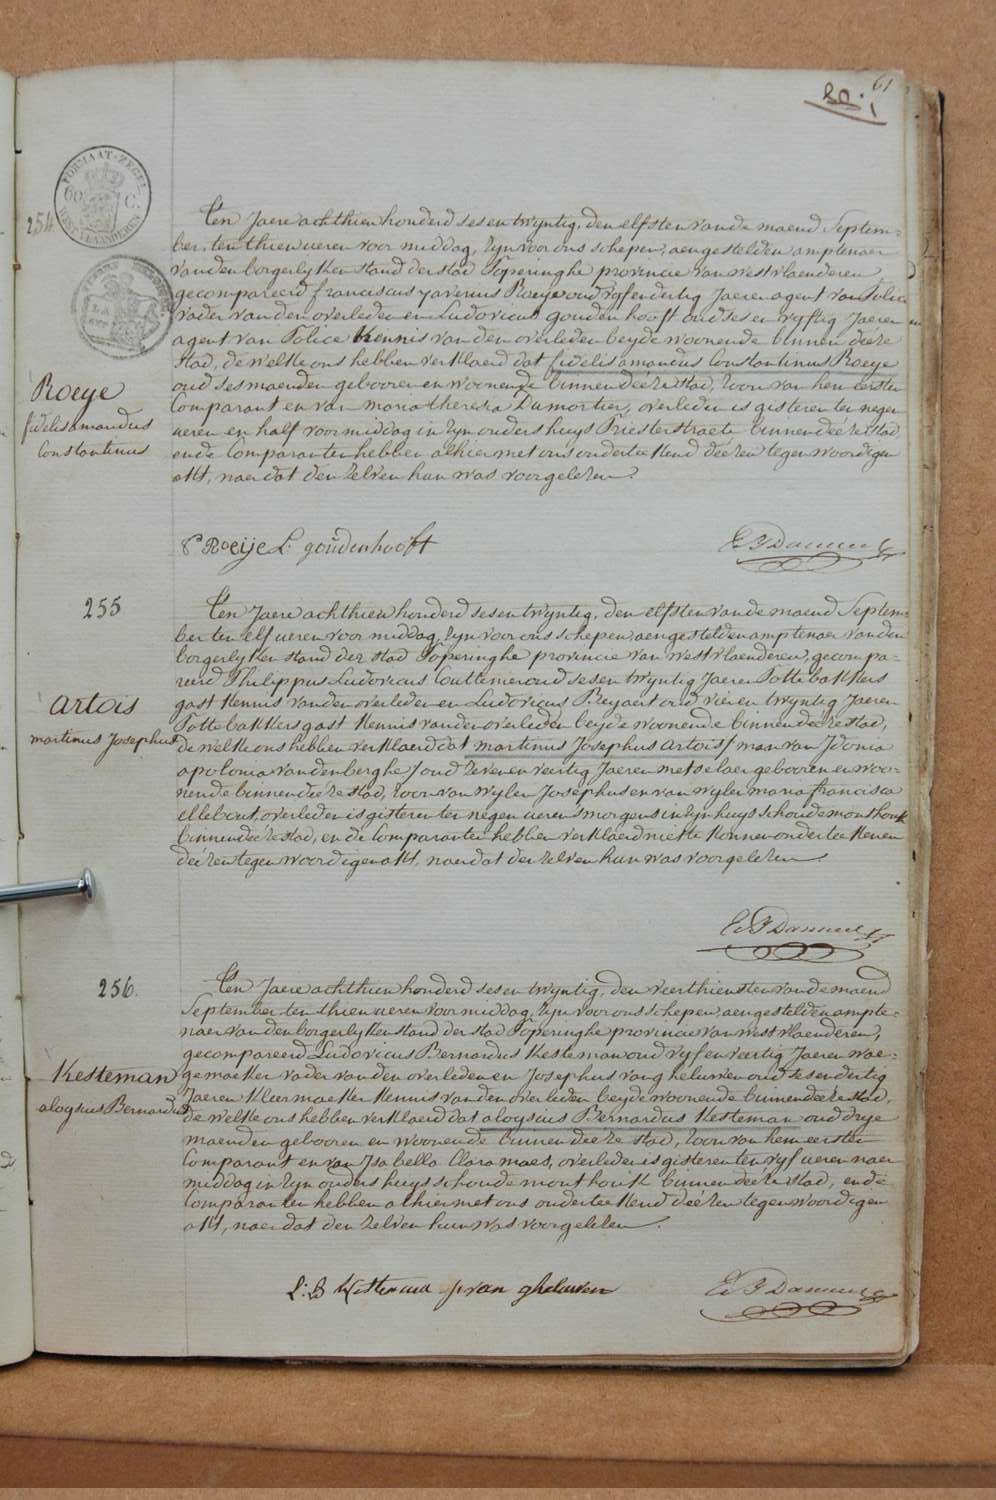 61
FORMAAT-ZEGEL
60 C.
WEST VLAANDEREN
254
Ten Jaere achthien honderd sesen twijntig, den elfsten vande maend Septem-
ber, ten thien ueren voor middag, Zijn voor ons schepen, aengestelden amptenaer
van den borgerlijken stand der stad Poperinghe provincie van westvlaenderen
gecompareerd franciscus xaverius Roeye oud vyfendertig Jaeren agent van Police
vader van den overleden en Ludovicus goudenhooft oud sesen vyftig Jaeren en
agent van Police kennis van den overleden beyde woonende binnen deeze
stad, de welke ons hebben verklaerd dat fidelis amandus Constantinus Roeye
oud ses maenden gebooren en woonende binnen deéze stad, Zoon van hem eersten
Comparant en van maria theresia Dumortier, overleden is gisteren ten negen
ueren en half voormiddag in Zyn ouders huys Priesterstraete binnen deéze stad
en de Comparanten hebben alhier met ons onderteekend deézen tegenwoordigen
akt, naer dat den Zelven hun was voorgelezen
Roeye
fidelis amandus
Constantinus
Roeije L. goudenhooft
255
Ten Jaere achthien honderd sesen twijntig, den elfsten vande maend Septem-
ber ten elf ueren voor middag, Zijn voor ons schepen aengestelden amptenaer van den
borgerlyken stand der stad Poperinghe provincie van westvlaenderen, gecompa-
reerd Philippus Ludovicus Couttemer oud sesen twyntig Jaeren Potte bakkers
gast kennis van den overleden en Ludovicus Beyaert oud vieren twyntig Jaeren
Potte bakkers gast kennis van den overleden beyde woonende binnen deéze stad,
de welke ons hebben verklaerd dat martinus Josephus Artois / man van Idonia
apolonia vandenberghe / oud Zeven en veertig Jaeren metselaer gebooren en woo-
nende binnen deéze stad, Zoon van wylen Josephus en van wylen maria francisca
ellebout, overleden is gisteren ten negen ueren smorgens in Zyn huys schoudemonthouk
binnen deéze stad, en de Comparanten hebben verklaerd niet te konnen onderteekenen
deézen tegenwoordigen akt, naer dat den Zelven hun was voorgelezen
Artois
martinus Josephus
256.
Ten Jaere achthien honderd sesen twijntig, den veerthiensten vande maend
September ten thien ueren voormiddag, Zyn voor ons schepen, aengestelden ampte-
naer van den borgerlyken stand der stad Poperinghe provincie van westvlaenderen,
gecompareerd Ludovicus Bernardus Kesteman oud vyfen veertig Jaeren wae-
gemaeker vader van den overleden en Josephus vang heluwen oud sesendertig
Jaeren kleermaeker kennis van den overleden beyde woonende binnen deéze stad,
de welke ons hebben verklaerd dat aloysius Bernardus Kesteman oud drye
maenden gebooren en woonende binnen deéze stad, Zoon van hem eersten
Comparant en van Isabella Clara maes, overleden is gisteren ten vyf ueren naer
middag in Zyn ouders huys schoude mont houk binnen deéze stad, en de
Comparanten hebben alhier met ons onderteekend deézen tegenwoordigen
akt, naer dat den Zelven hun was voorgelezen.
Kesteman
aloysius Bernardus
L: B Kesteman J van gheluwen